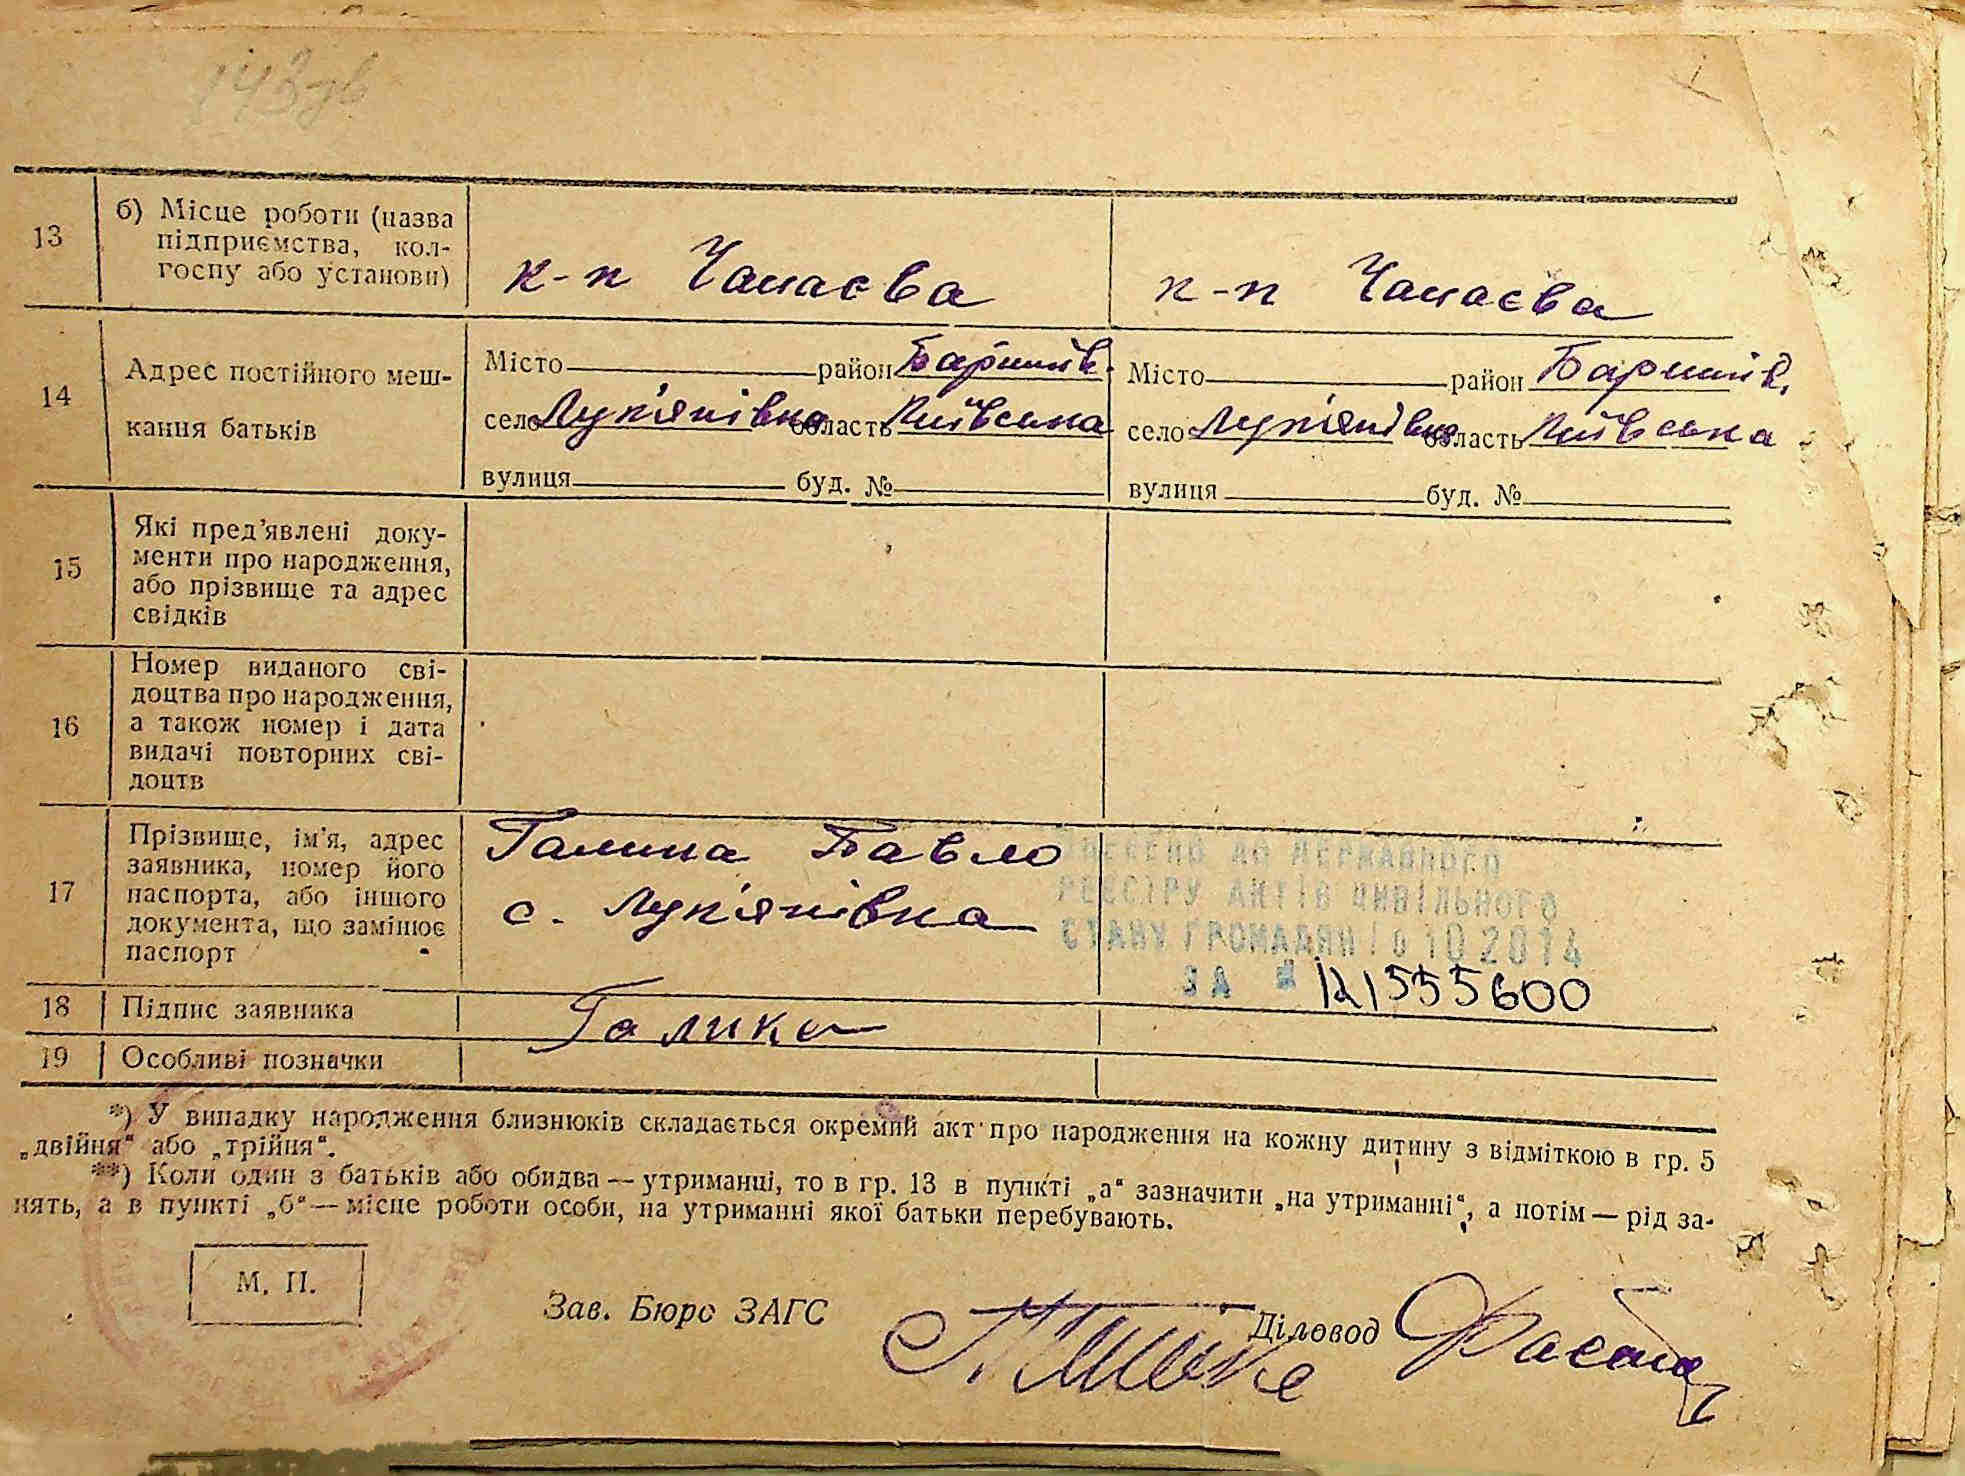 143зв
13
б) Місце роботи (назва
підприємства, кол-
госпу або установи)
к-п Чапаєва
к-п Чапаєва
14
Адрес постійного меш-
кання батьків
Місто район Баришів.
село Лук'янівка область Київська
вулиця буд. №
Місто район Баришів.
село Лук'янівка область Київська
вулиця буд. №
15
Які пред'явлені доку-
менти про народження,
або прізвище та адрес
свідків
16
Номер виданого сві-
доцтва про народження,
а також номер і дата
видачі повторних сві-
доцтв
17
Прізвище, ім'я, адрес
заявника, номер його
паспорта, або іншого
документа, що замінює
паспорт
Галика Павло
с. Лук'янівка
ВНЕСЕНО ДО ДЕРЖАВНОГО
РЕЄСТРУ АКТІВ ЦИВІЛЬНОГО
СТАНУ ГРОМАДЯН 10 2014
ЗА № 121555600
18
Підпис заявника
Галика
19
Особливі позначки
*) У випадку народження близнюків складається окремий акт про народження на кожну дитину з відміткою в гр. 5
„двійня“ або „трійня“.
**) Коли один з батьків або обидва — утриманці, то в гр. 13 в пункті „а“ зазначити „на утриманні“, а потім — рід за-
нять, а в пункті „б“ — місце роботи особи, на утриманні якої батьки перебувають.
М. П.
Зав. Бюро ЗАГС
Діловод